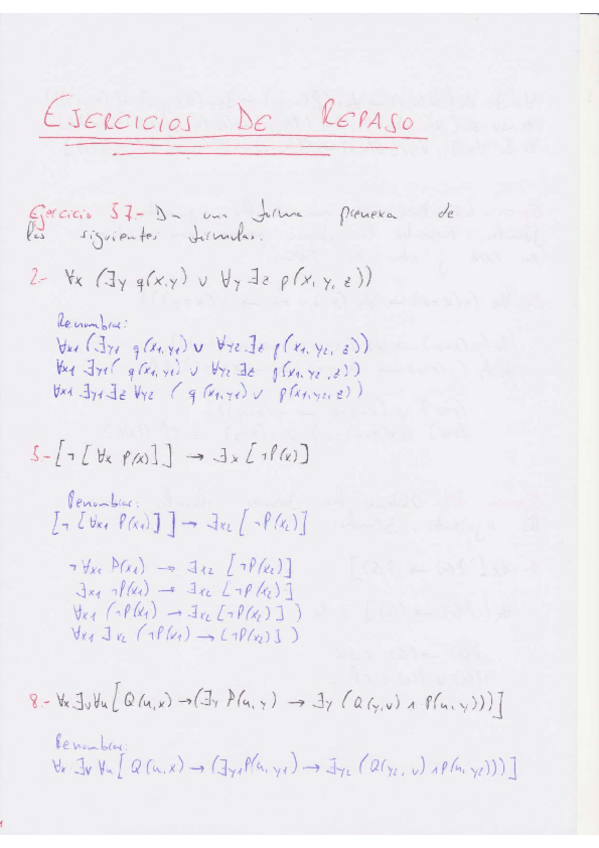 EJERCICIOS DE REPASO
Ejercicio 37.- Da una forma prenexa de
las siguientes fórmulas:
2.- ∀x (∃y q(x,y) ∨ ∀y ∃z p(x, y, z))
Renombrar:
∀x1 (∃y1 q(x1,y1) ∨ ∀y2 ∃z p(x1, y2, z))
∀x1 ∃y1 ( q(x1,y1) ∨ ∀y2 ∃z p(x1, y2, z))
∀x1 ∃y1 ∃z ∀y2 ( q(x1,y1) ∨ p(x1, y2, z))
5.- [¬ [∀x P(x)]] → ∃x [¬P(x)]
Renombrar:
[¬ [∀x1 P(x1)]] → ∃x2 [¬P(x2)]
¬∀x1 P(x1) → ∃x2 [¬P(x2)]
∃x1 ¬P(x1) → ∃x2 [¬P(x2)]
∀x1 (¬P(x1) → ∃x2 [¬P(x2)])
∀x1 ∃x2 (¬P(x1) → [¬P(x2)])
8.- ∀x ∃v ∀u [Q(u,x) → (∃y P(u,y) → ∃y (Q(y,v) ∧ P(u,y)))]
Renombrar:
∀x ∃v ∀u [Q(u,x) → (∃y1 P(u,y1) → ∃y2 (Q(y2, v) ∧ P(u, y2)))]